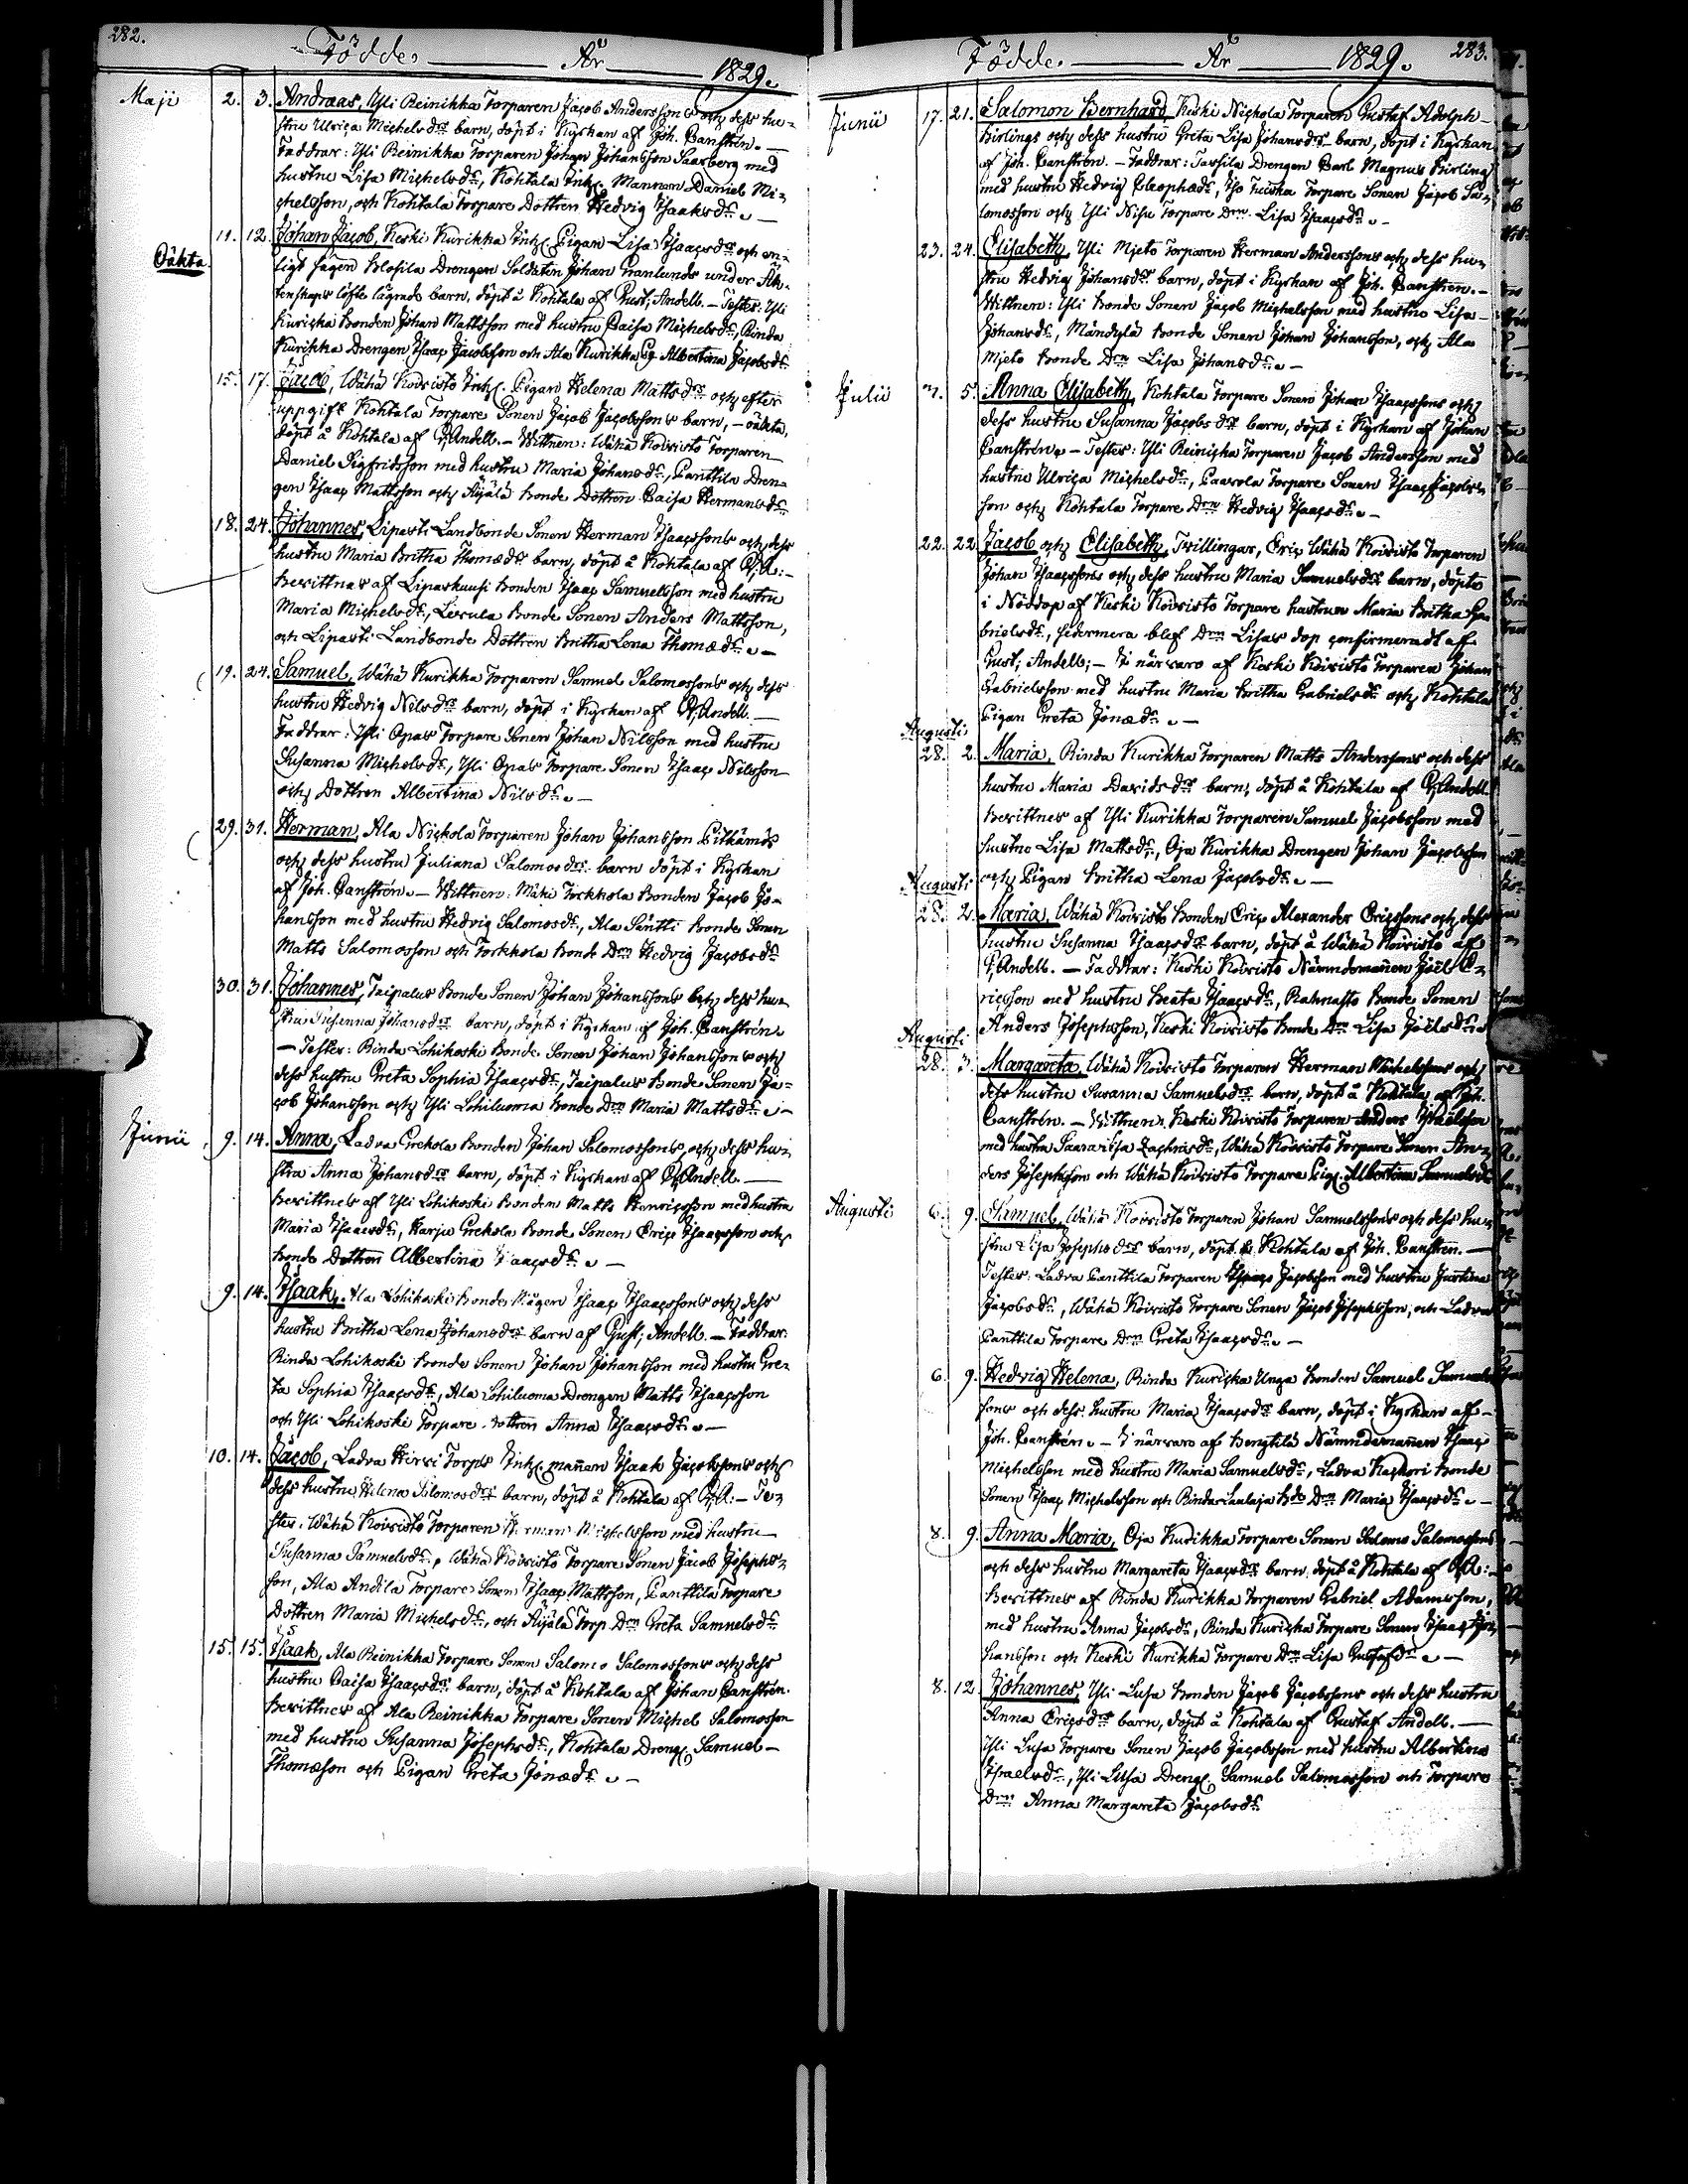 282.
Födde År 1829.
Maji 2. 3. Andreas, Yli Reinikka Torparen Jacob Anderssons och dess hu-
stru Ulrica Michelsdrs barn, döpt i Kyrkan af Joh. Canstrén. —
Faddrar: Yli Reinikka Torparen Johan Johansson Saarberg med
hustru Lisa Michelsdr, Kohtala Inh: Mannen Daniel Mi-
chelsson, och Kohtala Torpare Dottren Hedvig Isaaksdr. —
Oäkta. 11. 12. Johan Jacob, Keski Kurikka Inh: Pigan Lisa Isaacsdrs och en-
ligt sägen Drengen Soldaten Johan Granlunds under Äk-
tenskaps löfte lägrade barn, döpt å Kohtala af Gust; Andell. — Testes: Yli
Kuricka Bonden Johan Mattsson med hustru Caisa Michelsdr, Rinda
Kurikka Drengen Isaac Jacobsson och Ala Kurikka Pig. Albertina Jacobsdr
15. 17. Jacob, Wähä Koivisto Inh: Pigan Helena Mattsdrs och efter
uppgift Kohtala Torpare Sonen Jacob Jacobssons barn, — oäkta,
döpt å Kohtala af G; Andell. — Wittnen: Wähä Koivisto Torparen
Daniel Sigfridsson med hustru Maria Johansdr, Panttila Dren-
gen Isaac Mattsson och Äijälä Bonde Dottren Caisa Hermansdr
18. 24. Johannes, Lipasti Landbonde Sonen Herman Isaacssons och dess
hustru Maria Britha Thomædrs barn, döpt å Kohtala af G; A: —
Bevittnas af Liparkuusi Bonden Isaac Samuelsson med hustru
Maria Michelsdr, Levula Bonde Sonen Anders Mattsson,
och Lipasti Landbonde Dottren Britha Lena Thomædr. —
19. 24. Samuel, Wähä Kurikka Torparen Samuel Salomossons och dess
hustru Hedvig Nilsdrs barn, döpt i Kyrkan af G; Andell. —
Faddrar: Yli Opas Torpare Sonen Johan Nilsson med hustru
Susanna Michelsdr, Yli Opas Torpare Sonen Isaac Nilsson
och Dottren Albertina Nilsdr. —
29. 31. Herman, Ala Nickola Torparen Johan Johansson Pitkämäs
och dess hustru Juliana Salomosdrs barn döpt i Kyrkan
af Joh. Canstrén. — Wittnen: Mäki Torkkola Bonden Jacob Jo-
hansson med hustru Hedvig Salomosdr, Ala Säntti Bonde Sonen
Matts Salomosson och Torkkola Bonde Drn Hedvig Jacobsdr
30. 31. Johannes, Taipalus Bonde Sonen Johan Johanssons och dess hu-
stru Susanna Johansdrs barn, döpt i Kyrkan af Joh. Canstrén.
— Testes: Rinda Lohikoski Bonde Sonen Johan Johanssons och
dess hustru Greta Sophia Isaacsdr, Taipalus Bonde Sonen Ja-
cob Johansson och Yli Lohiluoma Bonde Drn Maria Mattsdr. —
Junii 9. 14. Anna, Ladva Grekola Bonden Johan Salomossons, och dess hu-
stru Anna Johansdrs barn, döpt i Kyrkan af G; Andell. —
Bevittnas af Yli Lohikoski Bonden Matts Henricsson med hustru
Maria Isaacsdr, Harju Grekola Bonde Sonen Eric Isaacsson och
Bonde Dottren Albertina Isaacsdr. —
9. 14. Isaak, Ala Lohikoski Bonde Mågen Isaac Isaacssons och dess
hustru Britha Lena Johansdrs barn af Gust; Andell. — Faddrar:
Rinda Lohikoski Bonde Sonen Johan Johansson med hustru Gre-
ta Sophia Isaacsdr, Ala Lohiluoma Drengen Matts Isaacsson
och Yli Lohikoski Torpare Dottren Anna Isaacsdr. —
10. 14. Jacob, Ladva Hirvi Torps Inh: mannen Isaak Jacobssons och
dess hustru Helena Salomosdrs barn, döpt å Kohtala af G; A: — Te-
stes: Wähä Koivisto Torparen Herman Michelsson med hustru
Susanna Samuelsdr, Wähä Koivisto Torpare Sonen Jacob Josephs-
son, Ala Andila Torpare Sonen Isaac Mattsson, Panttila Torpare
Dottren Maria Michelsdr, och Äijälä Torp. Drn Greta Samuelsdr
15. 15. Isaak, Ala Reinikka Torpare Sonen Salomo Salomossons och dess
hustru Caisa Isaacsdrs barn, döpt å Kohtala af Johan Canstrén.
Bevittnas af Ala Reinikka Torpare Sonen Michel Salomosson
med hustru Susanna Josephsdr, Kohtala Dreng: Samuel
Thomæson och Pigan Greta Jonædr. —
283.
Födde År 1829.
Junii 17. 21. Salomon Bernhard, Keski Nickola Torparen Gustaf Adolph
Birlings och dess hustru Greta Lisa Johansdrs barn, döpt i Kyrkan
af Joh. Canstrén. — Faddrar: Tassila Drengen Carl Magnus Birling
med hustru Hedvig Cleophædr, Iso Tuiska Torpare Sonen Jacob Sa-
lomosson och Yli Nisu Torpare Drn Lisa Isaacsdr. —
23. 24. Elisabeth, Yli Mjeto Torparen Herman Anderssons och dess hu-
stru Hedvig Johansdrs barn, döpt i Kyrkan af Joh. Canstrén. —
Wittnen: Yli Bonde Sonen Jacob Michelsson med hustru Lisa
Johansdr, Mändylä Bonde Sonen Johan Johansson, och Ala
Mjeto Bonde Drn Lisa Johansdr. —
Julii 5. Anna Elisabeth, Kohtala Torpare Sonen Johan Isaacssons och
dess hustru Susanna Jacobsdrs barn, döpt i Kyrkan af Johan
Canstrén. — Testes: Yli Reinicka Torparen Jacob Andersson med
hustru Ulrica Michelsdr, Paavola Torpare Sonen Isaac Jacobs-
son och Kohtala Torpare Drn Hedvig Isaacsdr. —
22. 22. Jacob och Elisabeth, Tvillingar, Eric Wähä Koivisto Torparen
Johan Isaacssons och dess hustru Maria Samuelsdrs barn, döpte
i Nöddop af Keski Koivisto Torpare hustrun Maria Britha Ga-
brielsdr, sedermera blef Drn Lisas dop confirmeradt af
Gust; Andell; — I närvaro af Keski Koivisto Torparen Johan
Gabrielsson med hustru Maria Britha Gabrielsdr och Kohtala
Pigan Greta Jonædr. —
Augusti
28. 2. Maria, Rinda Kurikka Torparen Matts Anderssons och dess
hustru Maria Davidsdrs barn, döpt å Kohtala af G; Andell.
Bevittnas af Yli Kurikka Torparen Samuel Jacobsson med
hustru Lisa Mattsdr, Oja Kurikka Drengen Johan Jacobsson
och Pigan Britha Lena Jacobsdr. —
Augusti
28. 2. Maria, Wähä Koivisto Bonden Eric Alexander Ericssons och dess
hustru Susanna Isaacsdrs barn, döpt å Wähä Koivisto af
G; Andell. — Faddrar: Keski Koivisto Nämndemannen Joël E-
ricsson med hustru Beata Isaacsdr, Rahnasto Bonde Sonen
Anders Josephsson, Keski Koivisto Bonde Drn Lisa Joëlsdr.
Augusti
28. 3. Margareta, Wähä Koivisto Torparen Herman Michelssons och
dess hustru Susanna Samuelsdrs barn, döpt å Kohtala af Joh.
Canstrén. — Wittnen: Keski Koivisto Torparen Anders Israëlsson
med hustru Saara Lisa Zachrisdr, Wähä Koivisto Torpare Sonen An-
ders Josephsson och Wähä Koivisto Torpare Pig: Albertina Samuelsdr
Augusti 6. 9. Samuel, Wähä Koivisto Torparen Johan Samuelssons och dess hu-
stru Lisa Josephsdrs barn, döpt å Kohtala af Joh. Canstrén. —
Testes: Ladva Panttila Torparen Isaac Jacobsson med hustru Justina
Jacobsdr, Wähä Koivisto Torpare Sonen Jacob Josephsson, och Ladva
Panttila Torpare Drn Greta Isaacsdr. —
6. 9. Hedvig Helena, Rinda Kuricka Unga Bonden Samuel Samuels-
sons och dess hustru Maria Isaacsdrs barn, döpt i Kyrkan af
Joh. Canstrén. — I närvaro af Bengtilä Nämndemannen Isaac
Michelsson med hustru Maria Samuelsdr, Ladva Kackori Bonde
Sonen Isaac Michelsson och Rinda Laulaja Bde Drn Maria Isaacsdr. —
8. 9. Anna Maria, Oja Kurikka Torpare Sonen Salomo Salomossons
och dess hustru Margareta Isaacsdrs barn, döpt å Kohtala af G; A: —
Bevittnas af Rinda Kurikka Torparen Gabriel Adamsson,
med hustru Anna Jacobsdr, Rinda Kuricka Torpare Sonen Isaac Jo-
hansson och Keski Kurikka Torpare Drn Lisa Gustafsdr. —
8. 12. Johannes, Yli Lusa Bonden Jacob Jacobssons och dess hustru
Anna Ericsdrs barn, döpt å Kohtala af Gustaf Andell. —
Yli Lusa Torpare Sonen Jacob Jacobsson med hustru Albertina
Israelsdr, Yli Lusa Dreng: Samuel Salomosson och Torpare
Drn Anna Margareta Jacobsdr